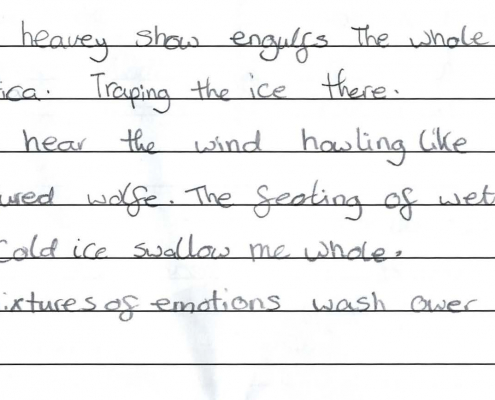 heavey show engulfs The whole
ica. Traping the ice there.
hear the wind howling like
ured wolfe. The feating of wet
Cold ice swallow me whole.
ixtures of emotions wash ower